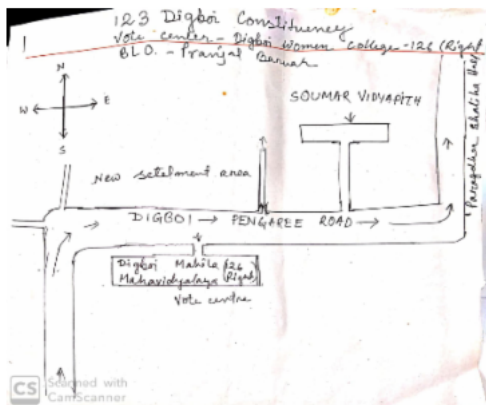 123 Digboi Constituency
Vote center - Digboi Women College - 126 (Right)
BLO. - Pranjal Baruah
N
W E
S
SOUMAR VIDYAPITH
New setelment area
DIGBOI → PENGAREE ROAD →
Digboi Mahila
Mahavidyalaya
(126 Right)
Vote centre
CS Scanned with
CamScanner